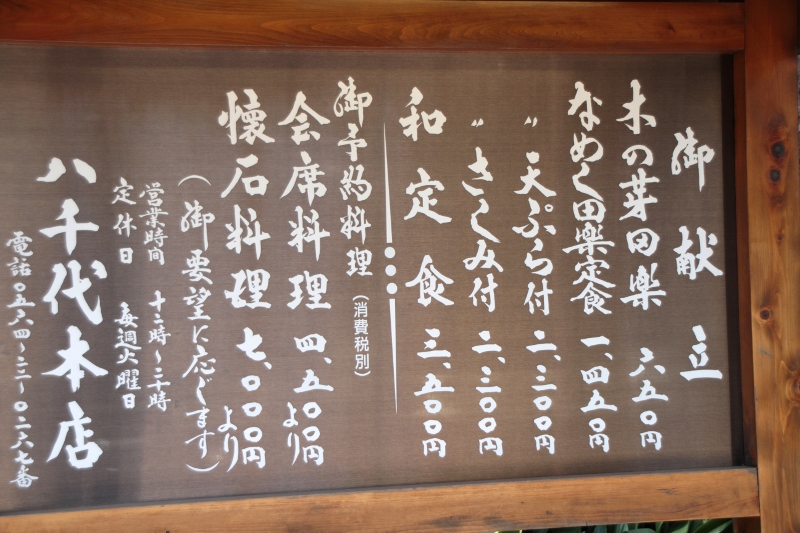 御献立
木の芽田楽 六五〇円
なめく田楽定食 一、四五〇円
〃 天ぷら付 二、三〇〇円
〃 さしみ付 二、三〇〇円
和定食 三、五〇〇円
御予約料理（消費税別）
会席料理 四、五〇〇円より
懐石料理 七、〇〇〇円より
（御要望に応じます）
営業時間 十二時〜二十時
定休日 毎週火曜日
八千代本店
電話〇五六四〜二二〜〇二六七番